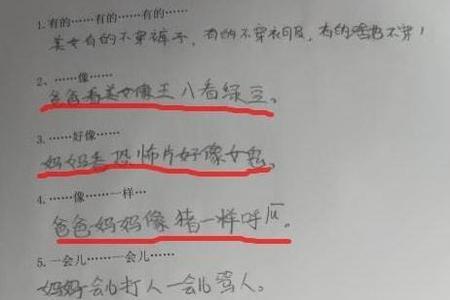 1.有的……有的……有的……
美女有的不穿裤子,有的不穿衣服,有的啥都不穿!
2、……像……
爸爸看美女像王八看绿豆。
3.……好像……
妈妈看恐怖片好像女鬼。
4.……像……一样…
爸爸妈妈像猪一样呼
5.一会儿……一会儿……
妈妈一会儿打人一会儿骂人。